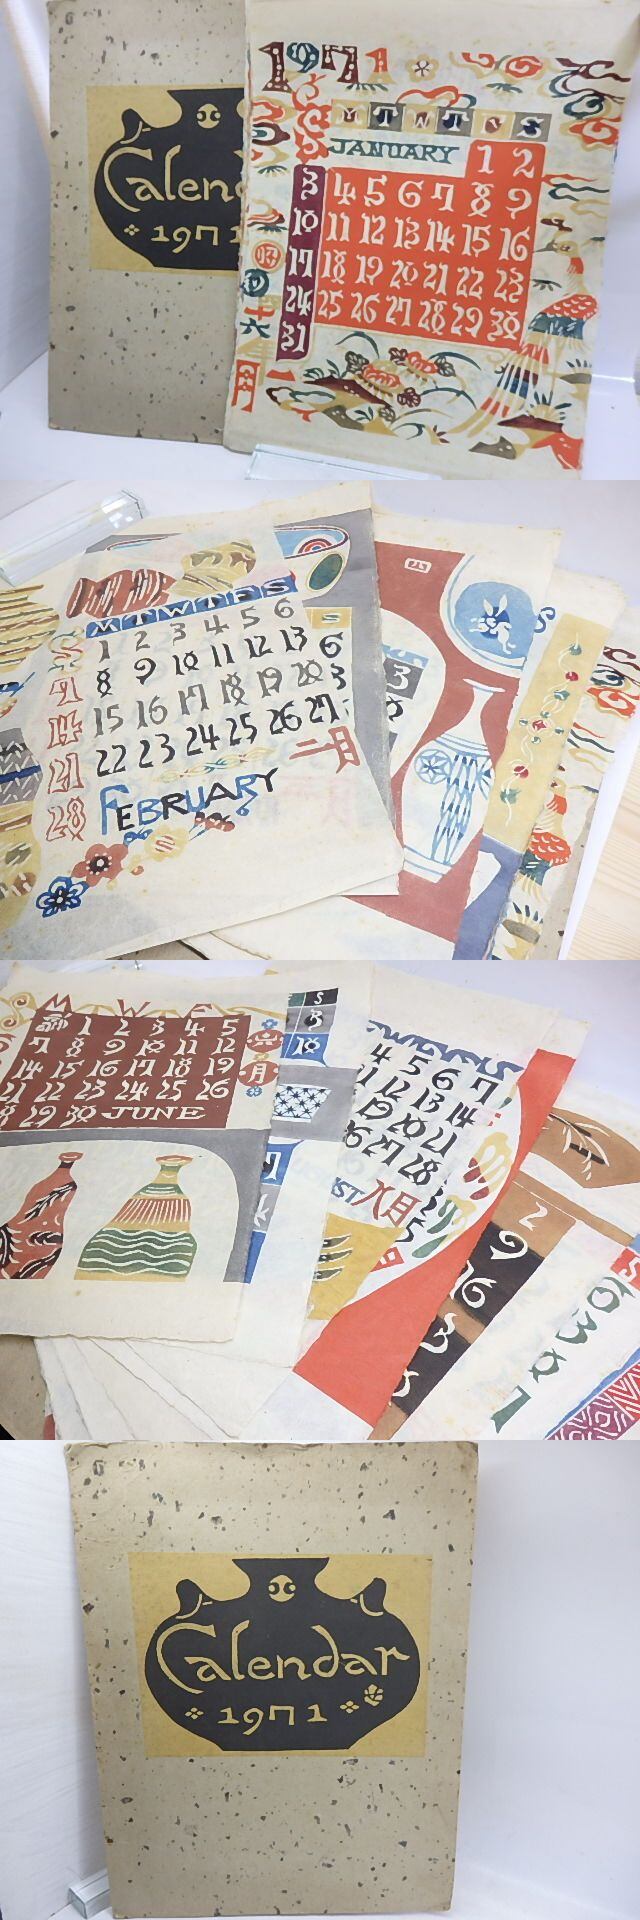 Calend
1971
1971
M T W T F S
JANUARY 1 2
3 4 5 6 7 8 9
10 11 12 13 14 15 16
17 18 19 20 21 22 23
24 25 26 27 28 29 30
31
昭
四
十
六
年
一
月
M T W T F S
1 2 3 4 5 6
7 8 9 10 11 12 13
14 15 16 17 18 19 20
21 22 23 24 25 26 27
28
二月
FEBRUARY
四
M W F
1 2 3 4 5
7 8 9 10 11 12
14 15 16 17 18 19
21 22 23 24 25 26
28 29 30 JUNE
六
月
S
3
10
4 5 6 7
11 12 13 14
19 20 21
26 27 28
UST 八月
2
9
16
Calendar
1971